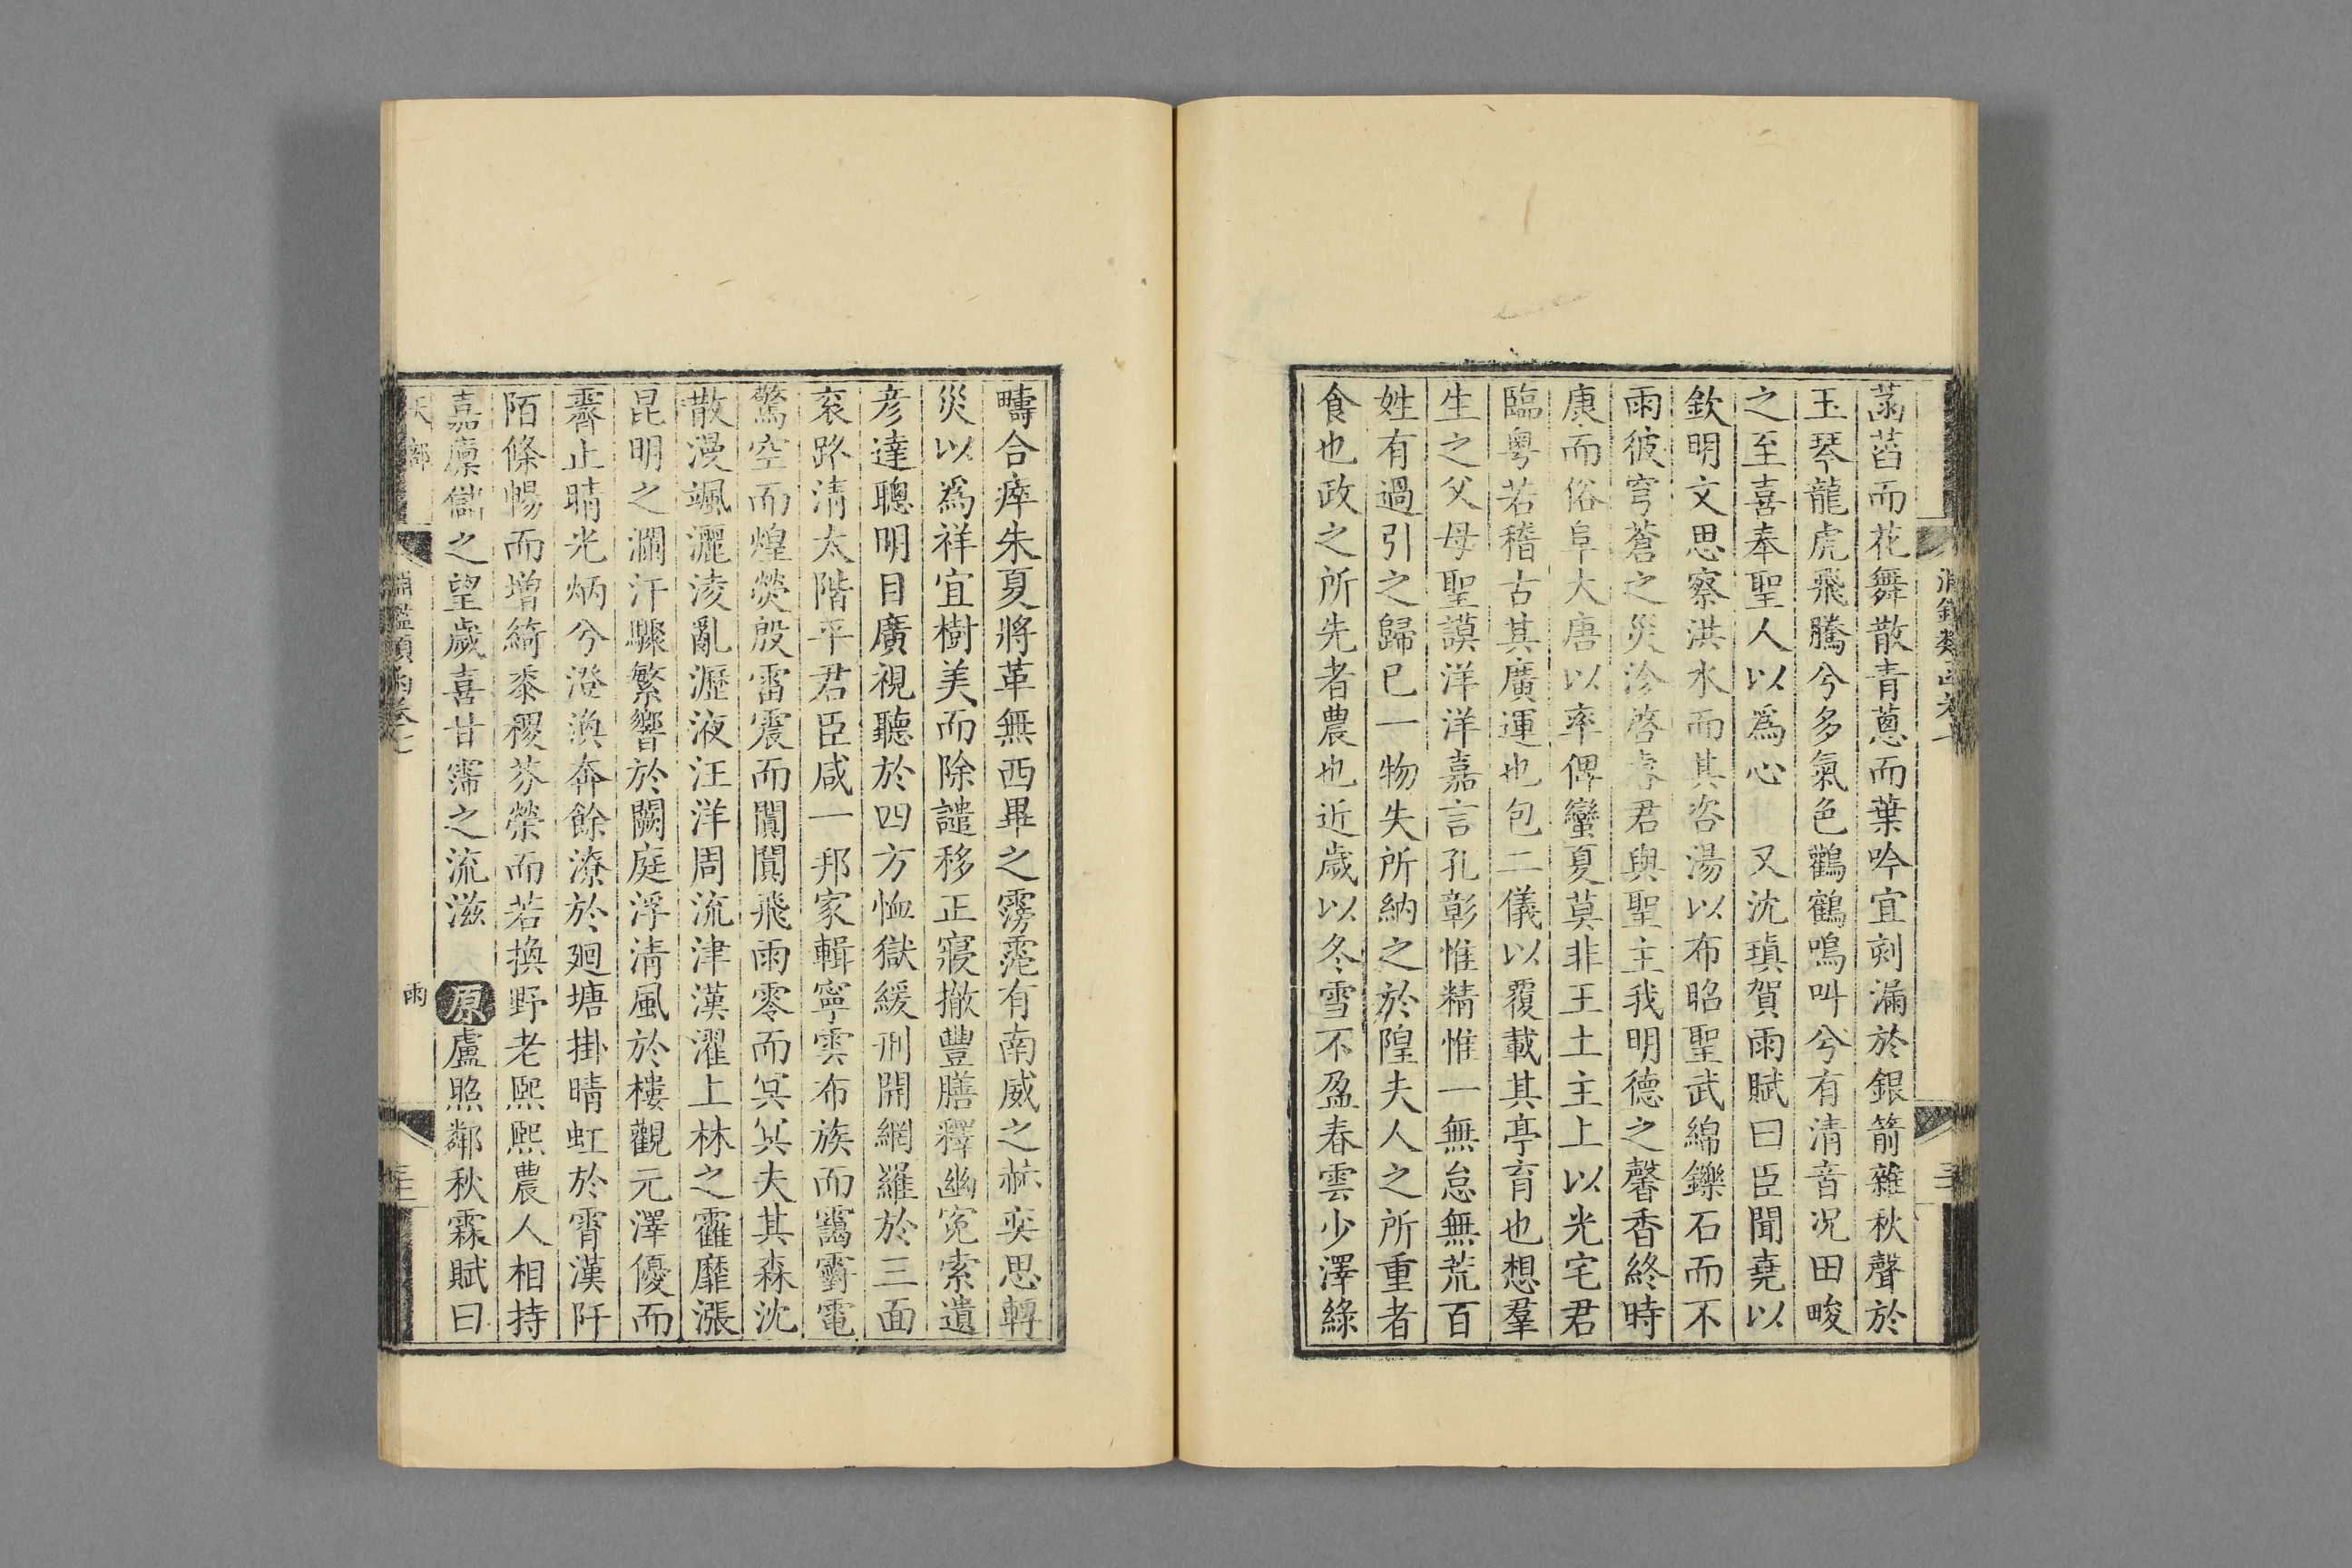 菡萏而花舞散青蔥而葉吟宜刻漏於銀箭雜秋聲於
玉琴龍虎飛騰兮多氣色鸛鶴鳴叫兮有清音况田畯
之至喜奉聖人以為心　又沈瑱賀雨賦曰臣聞堯以
欽明文思察洪水而其咨湯以布昭聖武綿鑠石而不
雨彼穹蒼之災沴啓君與聖主我明德之馨香終時
康而俗阜大唐以率俾蠻夏莫非王土主上以光宅君
臨粵若稽古其廣運也包二儀以覆載其亭育也想羣
生之父母聖謨洋洋嘉言孔彰惟精惟一無怠無荒百
姓有過引之歸已一物失所納之於隍夫人之所重者
食也政之所先者農也近歲以冬雪不盈春雲少澤綠
疇合瘁朱夏將革無西畢之霶霑有南威之赫奕思轉
災以為祥宜樹美而除譴移正寢撤豐膳釋幽寃索遺
彥達聰明目廣視聽於四方恤獄緩刑開網羅於三面
衮路清太階平君臣咸一邦家輯寧雲布族而靄霨電
驚空而煌熒殷雷震而闐闐飛雨零而冥冥夫其森沈
散漫颯灑淩亂瀝液汪洋周流津漢濯上林之霍靡漲
昆明之瀾汗驟繁響於闕庭浮清風於樓觀元澤優而
霽止晴光炳兮澄渙奔餘潦於廻塘掛晴虹於霄漢阡
陌條暢而增綺黍稷芬榮而若換野老熙熙農人相持
嘉廩儲之望歲喜甘霈之流滋　原盧照鄰秋霖賦曰
淵鑑類函卷七
雨